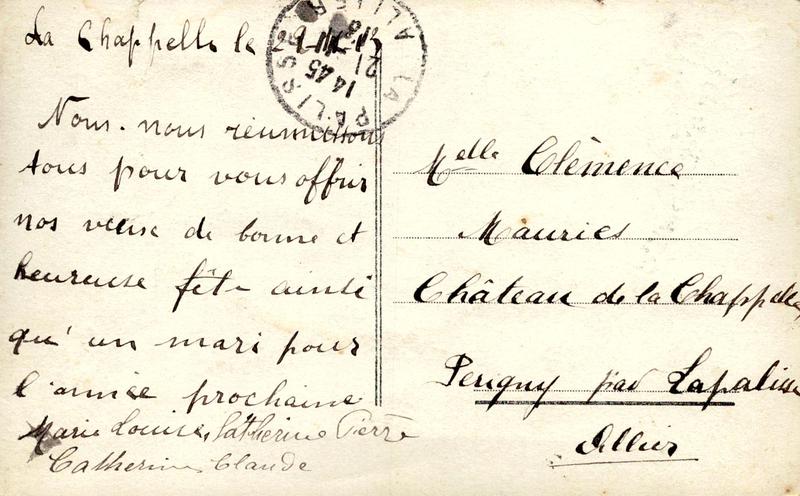 La Chappelle le
LAPALISSE
ALLIER
14 45
21
Nous. nous réunissons
tous pour vous offrir
nos veuse de bonne et
heureuse fête ainsi
qu'un mari pour
l'année prochaine
Marie Louise, Catherine Pierre
Catherine Claude
Melle Clèmence
Mauries
Château de la Chappelle
Perigny par Lapalisse
Allier